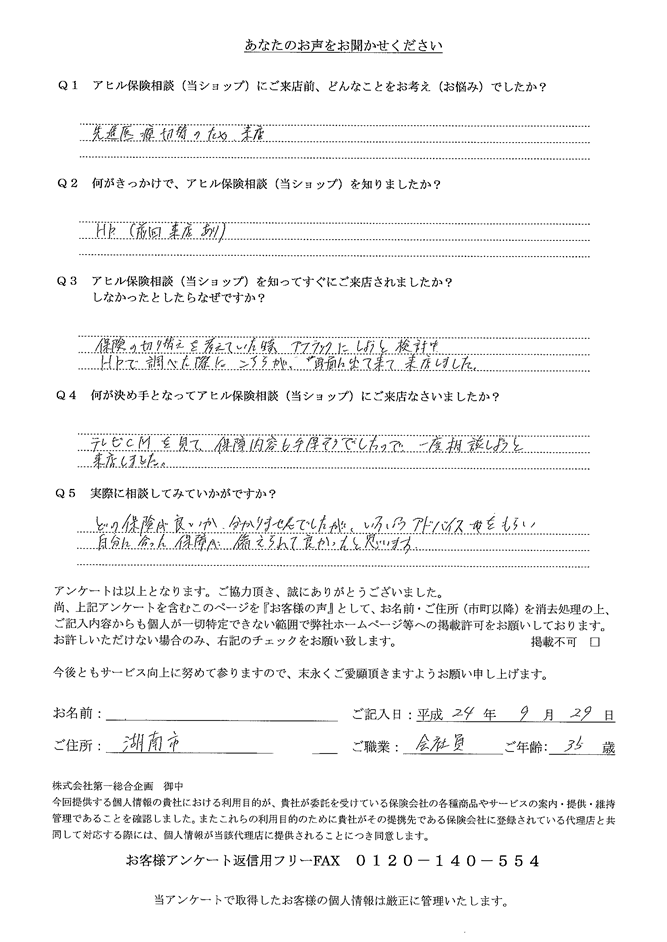 あなたのお声をお聞かせください
Q1 アヒル保険相談（当ショップ）にご来店前、どんなことをお考え（お悩み）でしたか？
先進医療切替のため 来店
Q2 何がきっかけで、アヒル保険相談（当ショップ）を知りましたか？
HP（前回来店あり）
Q3 アヒル保険相談（当ショップ）を知ってすぐにご来店されましたか？
しなかったとしたらなぜですか？
保険の切り替えを考えていた時、アフラックにしようと検討中
HPで調べた際に こちらが、 出て来て 来店しました。
Q4 何が決め手となってアヒル保険相談（当ショップ）にご来店なさいましたか？
テレビCMを見て 保障内容も手厚そうでしたので、一度相談しようと
来店しました。
Q5 実際に相談してみていかがですか？
どの保険が良いか、分かりませんでしたが、いろいろアドバイス をもらい
自分に合った保障が 備えられて良かったと思います。
アンケートは以上となります。ご協力頂き、誠にありがとうございました。
尚、上記アンケートを含むこのページを『お客様の声』として、お名前・ご住所（市町以降）を消去処理の上、
ご記入内容からも個人が一切特定できない範囲で弊社ホームページ等への掲載許可をお願いしております。
お許しいただけない場合のみ、右記のチェックをお願い致します。 掲載不可 □
今後ともサービス向上に努めて参りますので、末永くご愛顧頂きますようお願い申し上げます。
お名前： ご記入日：平成 24 年 9 月 29 日
ご住所： 湖南市 ご職業： 会社員 ご年齢： 35 歳
株式会社第一総合企画 御中
今回提供する個人情報の貴社における利用目的が、貴社が委託を受けている保険会社の各種商品やサービスの案内・提供・維持
管理であることを確認しました。またこれらの利用目的のために貴社がその提携先である保険会社に登録されている代理店と共
同して対応する際には、個人情報が当該代理店に提供されることにつき同意します。
お客様アンケート返信用フリーFAX 0120－140－554
当アンケートで取得したお客様の個人情報は厳正に管理いたします。